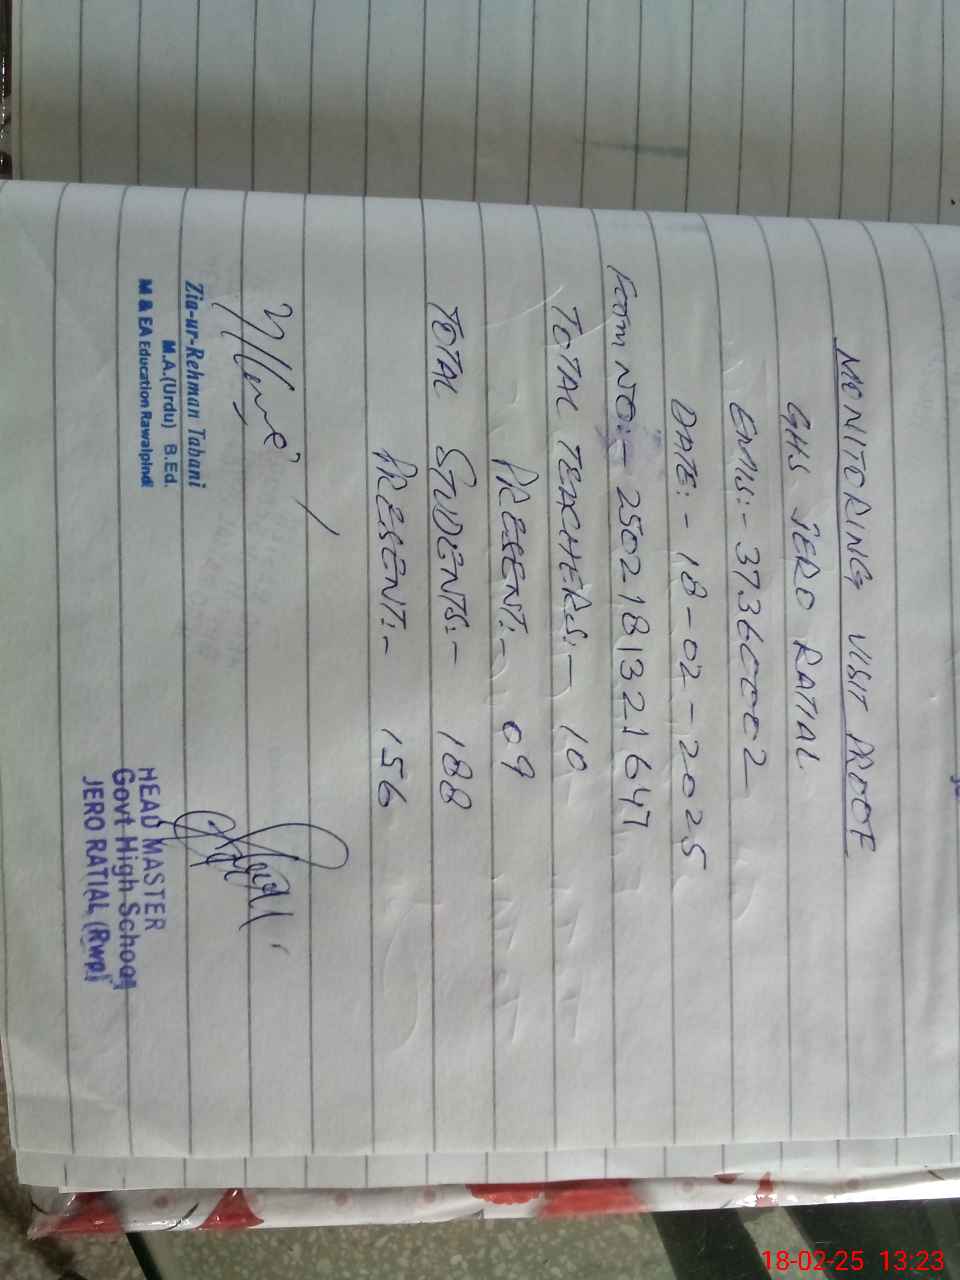 MONITORING VISIT PROOF
GHS JERO RATIAL
EMIS:- 37360002
DATE:- 18-02-2025
FORM NO:- 2502181321647
TOTAL TEACHERS:- 10
PRESENT:- 09
TOTAL STUDENTS:- 188
PRESENT:- 156
Zia-ur-Rehman Tabani
M.A.(Urdu) B.Ed.
M & EA Education Rawalpindi
HEAD MASTER
Govt High School
JERO RATIAL (Rwp)
18-02-25 13:23